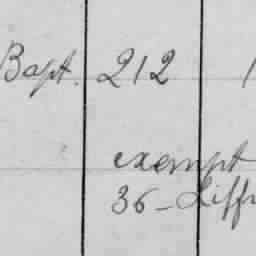 Bapt. 212 1
exempt
36 - Liff